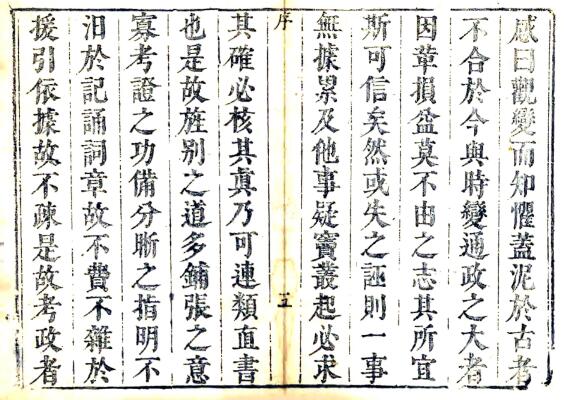 感曰觀變而知懼蓋泥於古者
不合於今與時變通政之大者
因革損益莫不由之志其所宜
斯可信矣然或失之誣則一事
無據累及他事疑竇叢起必求
序
五
其確必核其眞乃可連類直書
也是故旌别之道多鋪張之意
寡考證之功備分晰之指明不
汨於記誦詞章故不費不雜於
援引依據故不疎是故考政者